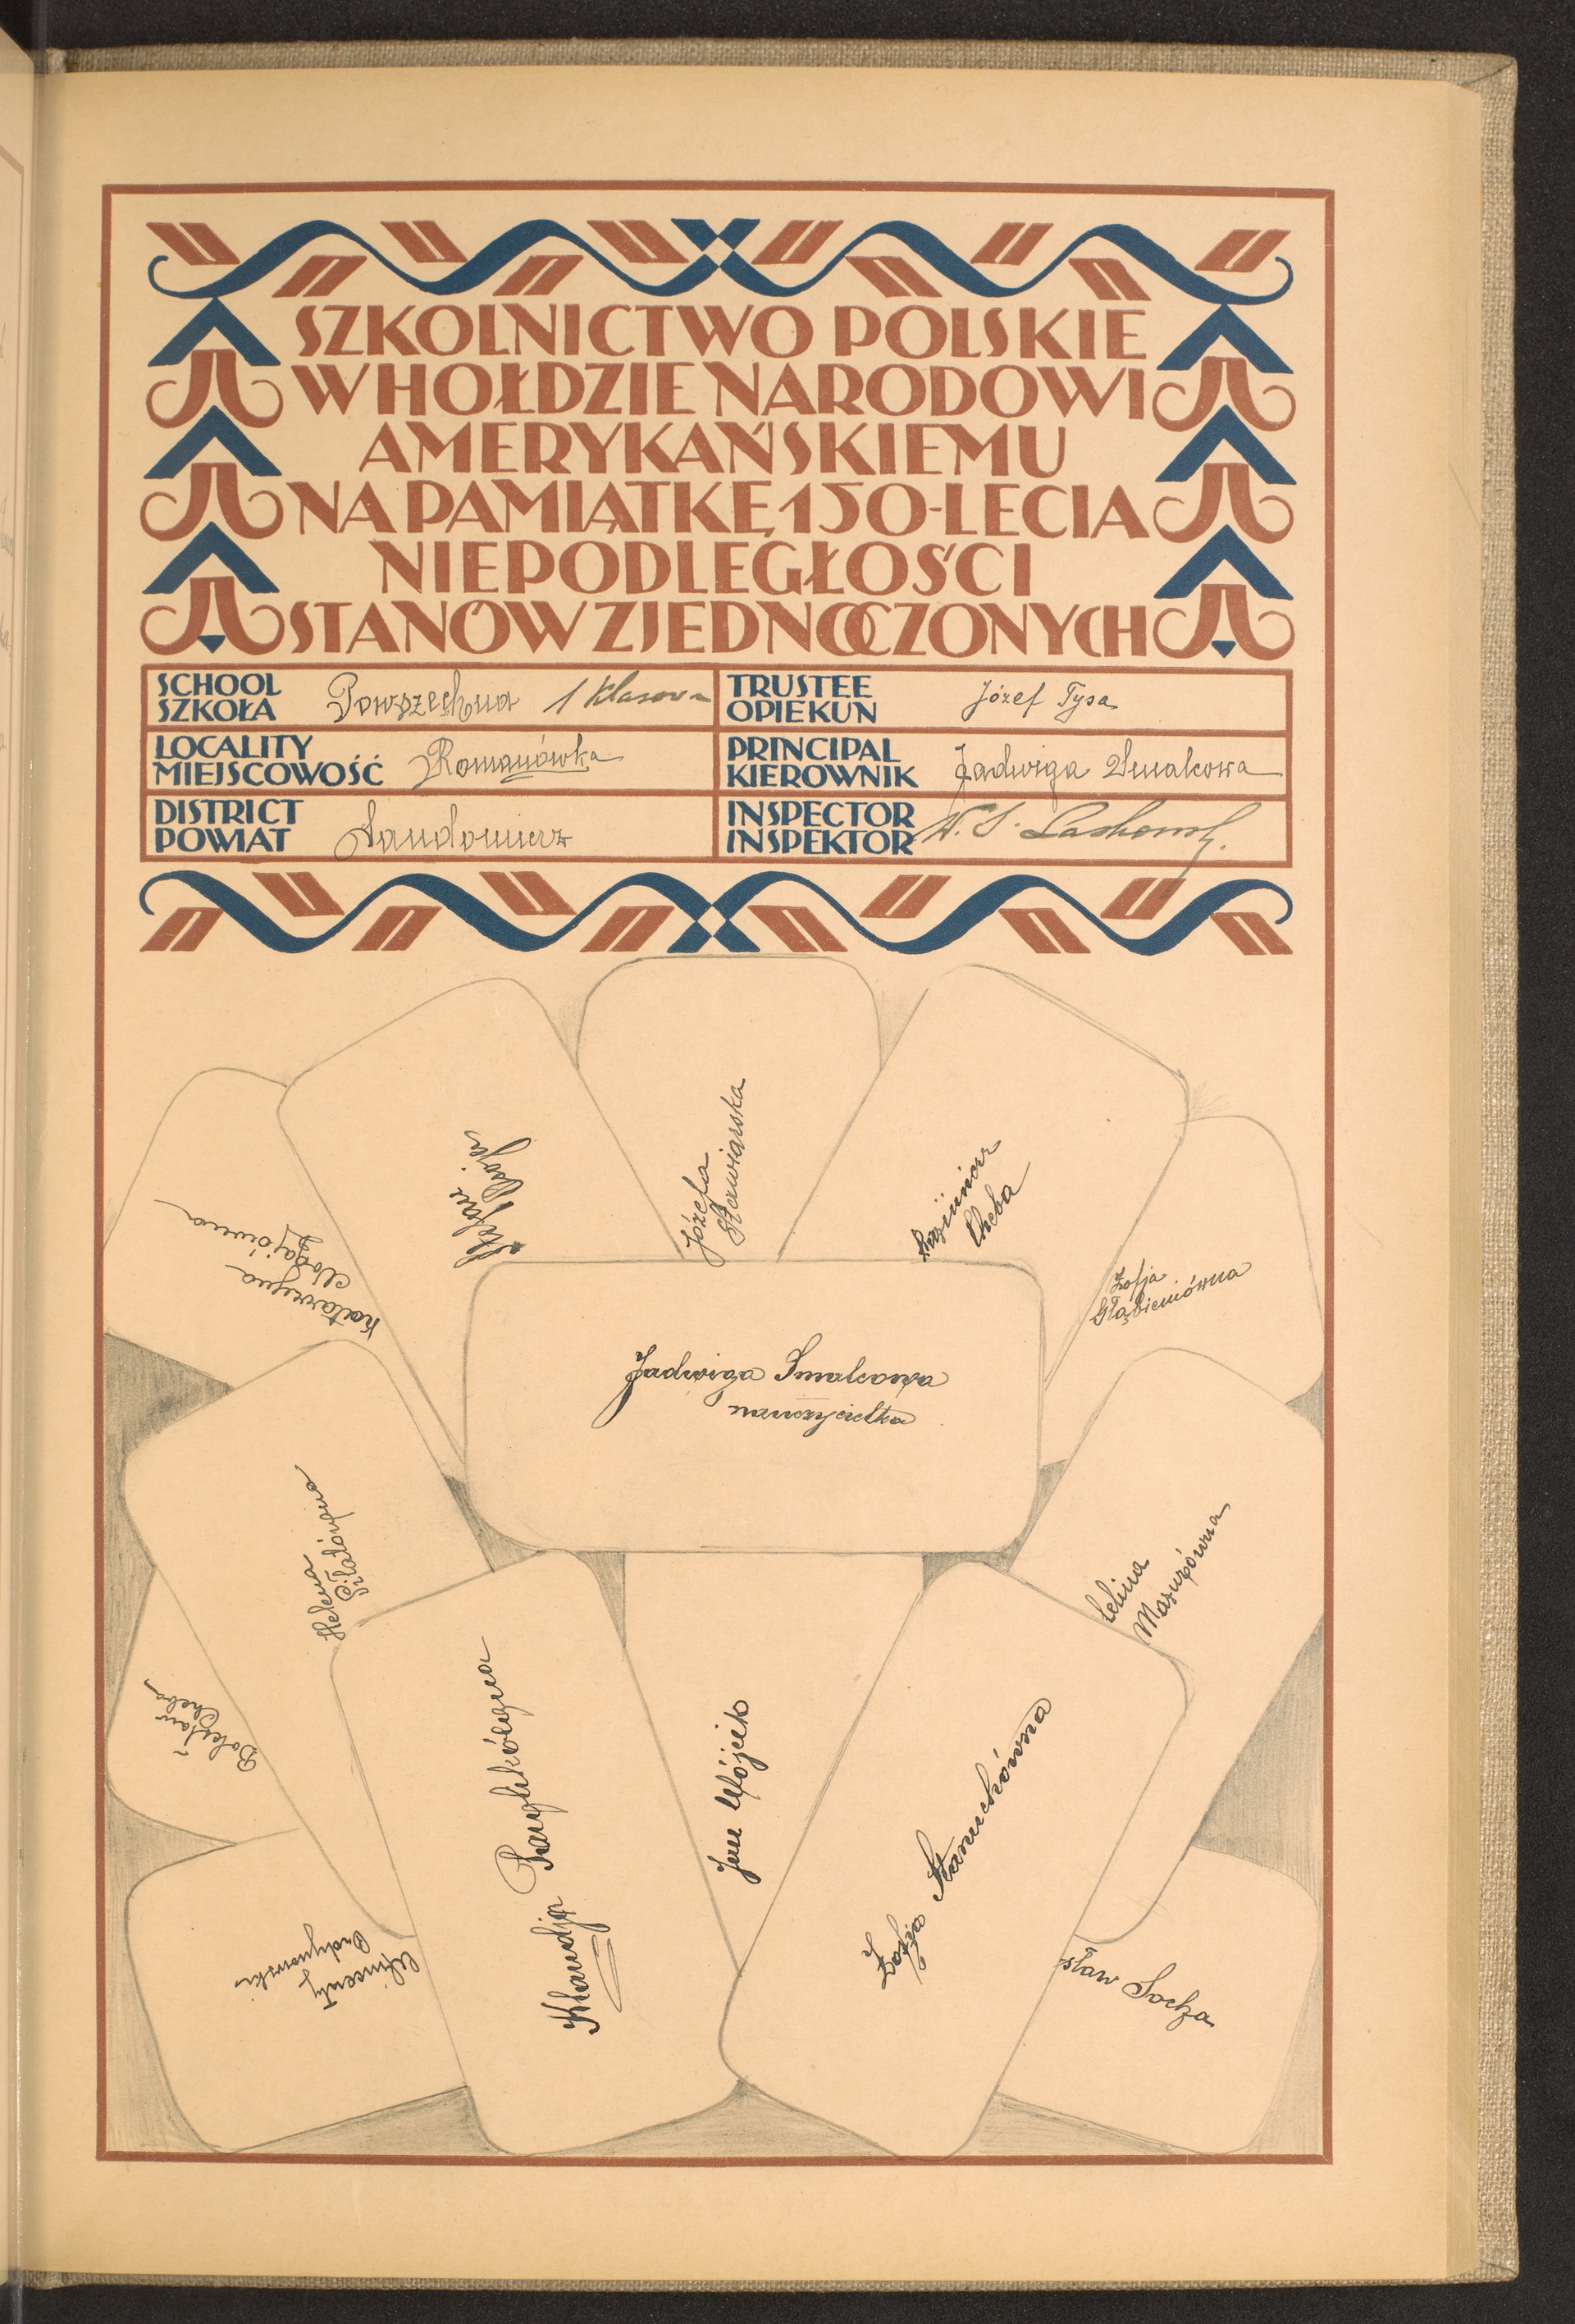 SZKOLNICTWO POLSKIE
W HOŁDZIE NARODOWI
AMERYKAŃSKIEMU
NA PAMIĄTKĘ 150-LECIA
NIEPODLEGŁOŚCI
STANÓW ZJEDNOCZONYCH
SCHOOL
SZKOŁA
Powszechna 1 klasowa
TRUSTEE
OPIEKUN
Józef Tysa
LOCALITY
MIEJSCOWOŚĆ
Romanówka
PRINCIPAL
KIEROWNIK
Jadwiga Smalcowa
DISTRICT
POWIAT
Sandomierz
INSPECTOR
INSPEKTOR
Katarzyna
Stefan
Józefa
Stawiarska
Kazimierz
Cheba
Zofja
Głąbieniówna
Jadwiga Smalcowa
nauczycielka
Helena
Celina
Mazurówna
Bolesław
Cheba
Klaudja
Jan Wójcik
Zofja Staneckówna
Wincenty
Ordynowski
sław Socha